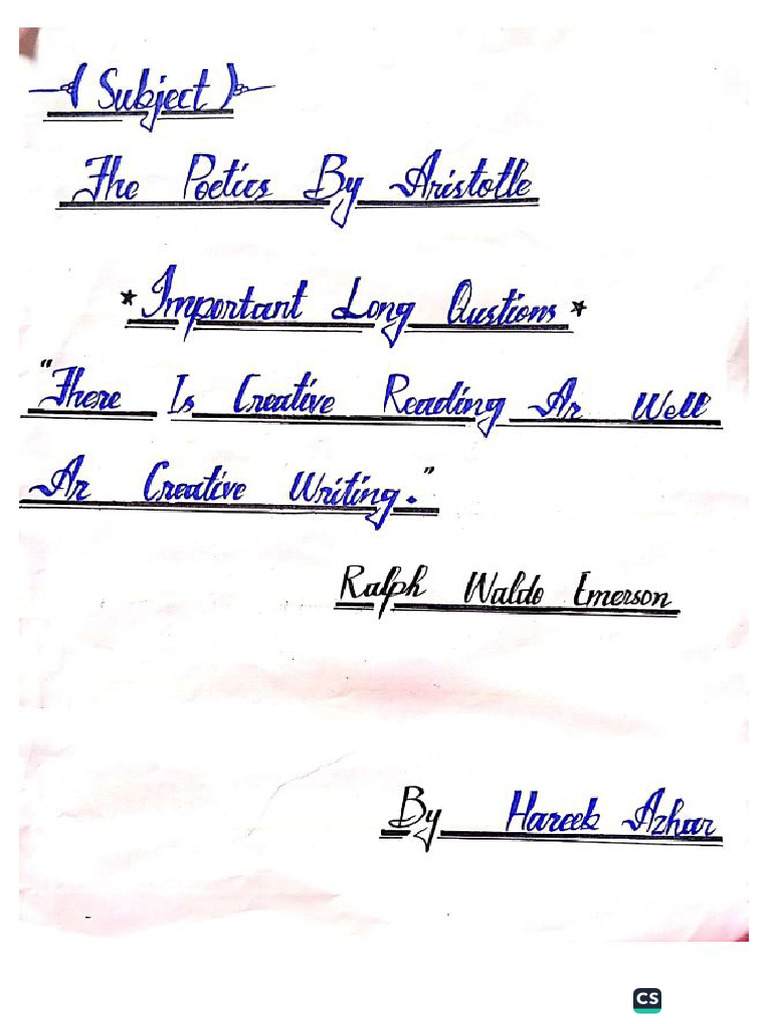 (Subject)
The Poetics By Aristotle
*Important Long Qustions*
"There Is Creative Reading As Well
As Creative Writing."
Ralph Waldo Emerson
By Hareek Azhar
CS